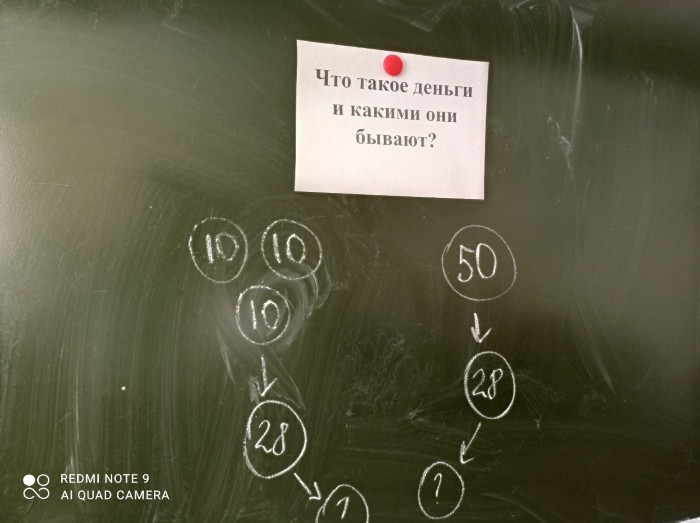 Что такое деньги
и какими они
бывают?
10 10 50
10
28
28
?
?
REDMI NOTE 9
AI QUAD CAMERA